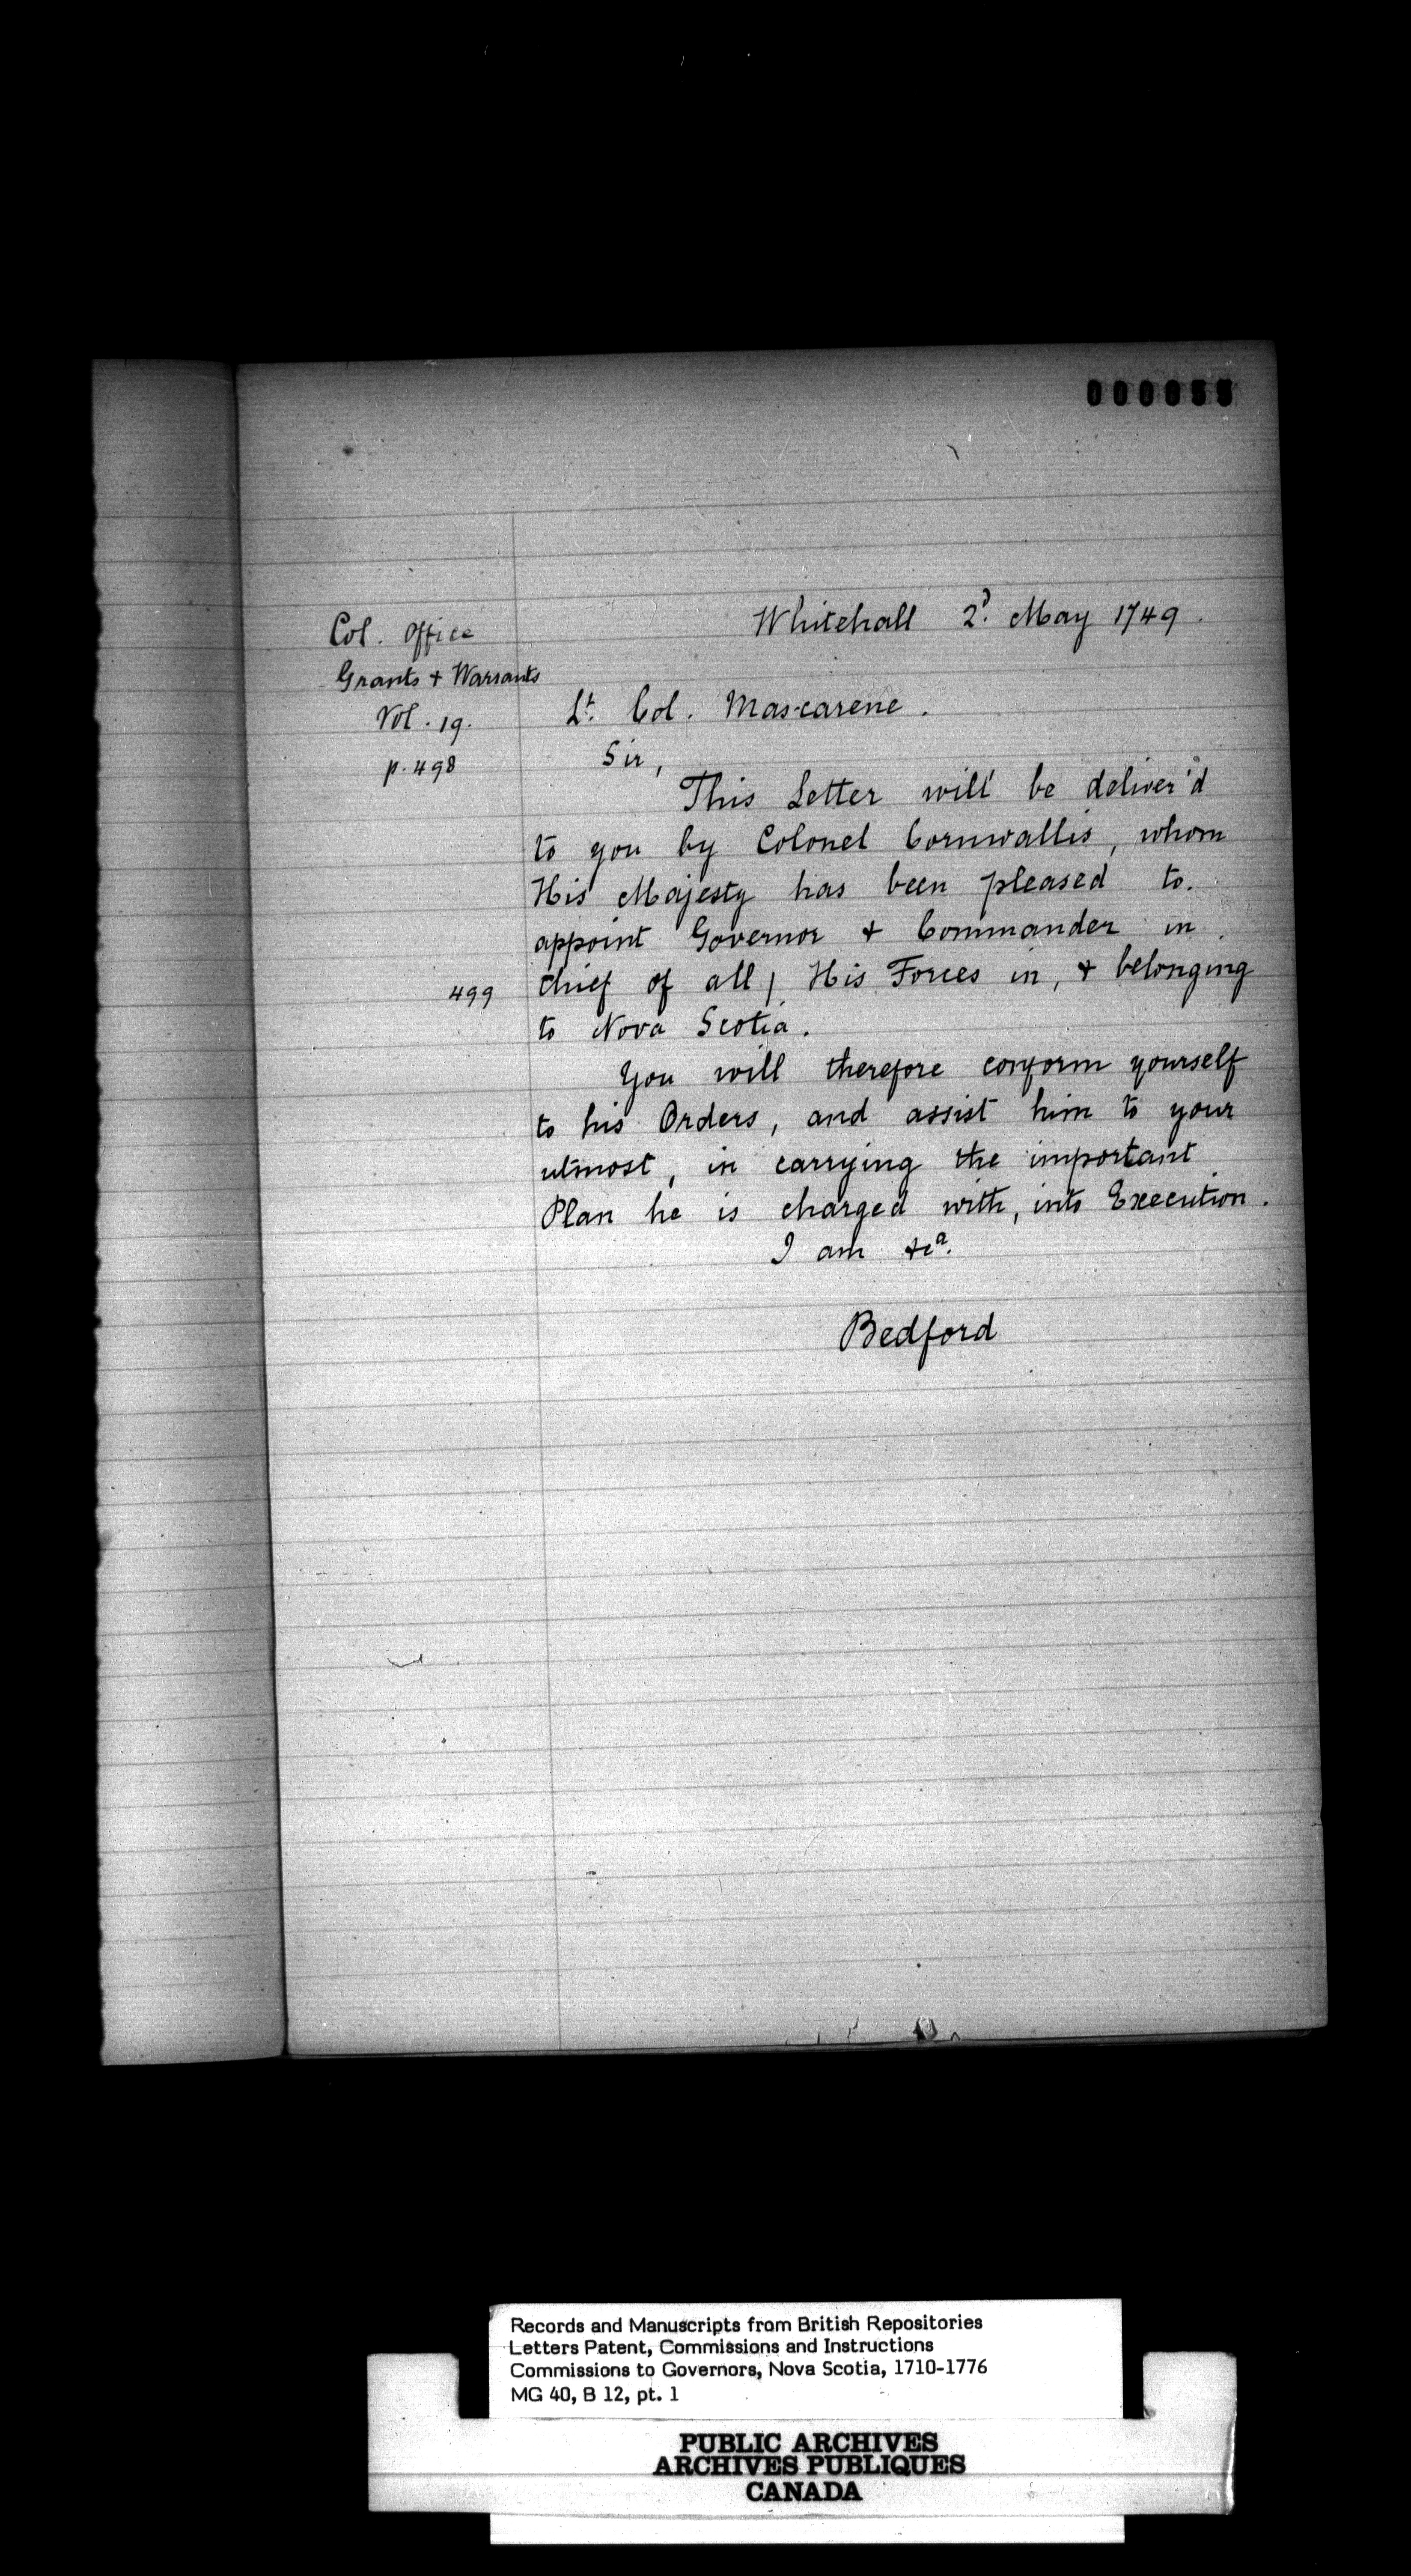 000055
Whitehall 2ᵈ. May 1749.
Col. Office
Grants + Warrants
Vol. 19.
p. 498
Lᵗ. Col. Mascarene.
Sir,
This Letter will be deliver'd
to you by Colonel Cornwallis, whom
His Majesty has been pleased to
appoint Governor + Commander in
499
chief of all | His Forces in, + belonging
to Nova Scotia.
You will therefore conform yourself
to his Orders, and assist him to your
utmost, in carrying the important
Plan he is charged with, into Execution.
I am &cᵃ.
Bedford
Records and Manuscripts from British Repositories
Letters Patent, Commissions and Instructions
Commissions to Governors, Nova Scotia, 1710-1776
MG 40, B 12, pt. 1
PUBLIC ARCHIVES
ARCHIVES PUBLIQUES
CANADA